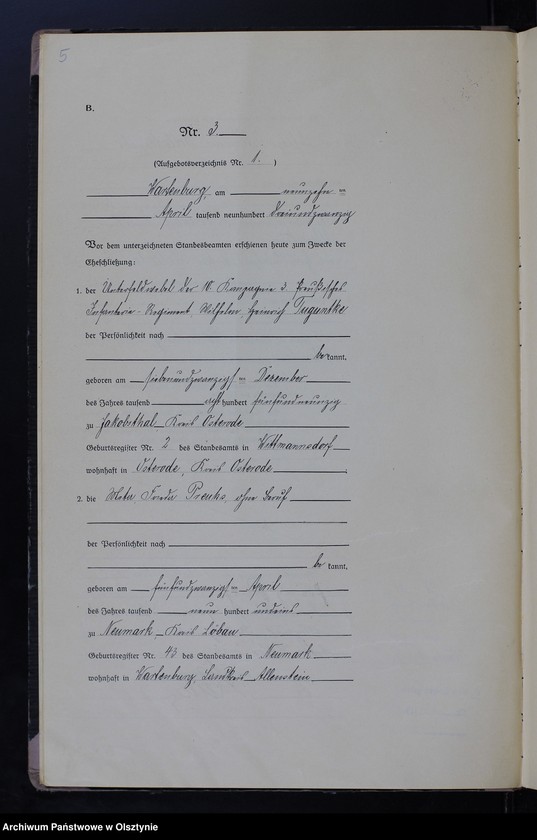 5
B.
Nr. 3
(Aufgebotsverzeichnis Nr. 1. )
Wartenburg, am neunzehn ten
April tausend neunhundert dreiundzwanzig
Vor dem unterzeichneten Standesbeamten erschienen heute zum Zwecke der
Eheschließung:
1. der Unterfeldwebel der 10. Kompagnie 2. Preußisches
Infanterie-Regiment, Wilhelm, Heinrich Tugundke
der Persönlichkeit nach
be kannt,
geboren am siebenundzwanzigsten Dezember
des Jahres tausend acht hundert fünfundneunzig
zu Jakobsthal, Kreis Osterode
Geburtsregister Nr. 2 des Standesamts in Wittmannsdorf
wohnhaft in Osterode, Kreis Osterode
2. die Meta, Frieda Preuhs, ohne Beruf
der Persönlichkeit nach
be kannt,
geboren am fünfundzwanzigsten April
des Jahres tausend neun hundert undeins
zu Neumark, Kreis Löbau
Geburtsregister Nr. 43 des Standesamts in Neumark
wohnhaft in Wartenburg, Landkreis Allenstein
Archiwum Państwowe w Olsztynie